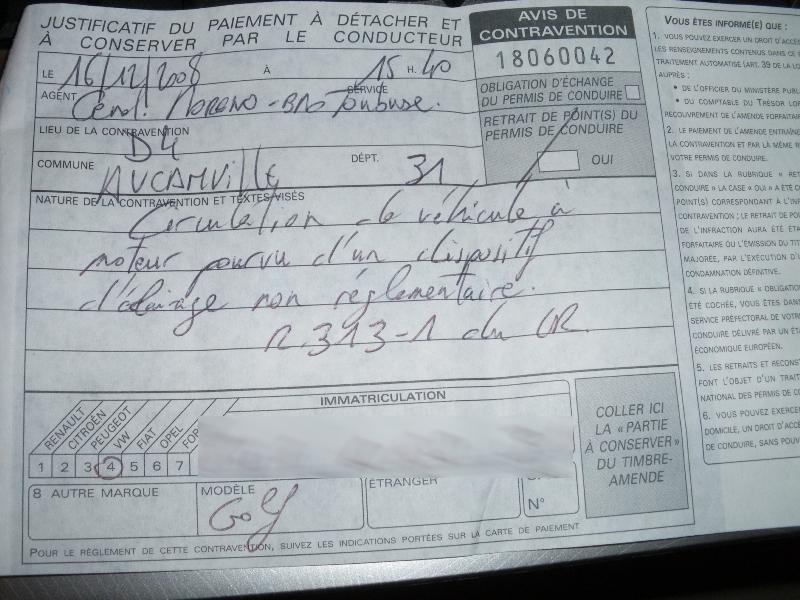 JUSTIFICATIF DU PAIEMENT À DÉTACHER ET
À CONSERVER PAR LE CONDUCTEUR
LE 16/12/2008 À 15 H. 40
SERVICE
AGENT
LIEU DE LA CONTRAVENTION
D4
COMMUNE AUCAMVILLE DÉPT. 31
NATURE DE LA CONTRAVENTION ET TEXTES VISÉS
Circulation de véhicule à
moteur pourvu d'un dispositif
d'éclairage non réglementaire.
R.313-1 du CR.
AVIS DE
CONTRAVENTION
18060042
OBLIGATION D'ÉCHANGE
DU PERMIS DE CONDUIRE
RETRAIT DE POINT(S) DU
PERMIS DE CONDUIRE
OUI
IMMATRICULATION
RENAULT
CITROËN
PEUGEOT
VW
FIAT
OPEL
FOR
1 2 3 4 5 6 7
8 AUTRE MARQUE
MODÈLE
Golf
ÉTRANGER
N°
COLLER ICI
LA « PARTIE
À CONSERVER »
DU TIMBRE-
AMENDE
POUR LE RÈGLEMENT DE CETTE CONTRAVENTION, SUIVEZ LES INDICATIONS PORTÉES SUR LA CARTE DE PAIEMENT
VOUS ÊTES INFORMÉ(E) QUE :
1. VOUS POUVEZ EXERCER UN DROIT D'ACCÈS
LES RENSEIGNEMENTS CONTENUS DANS CE
TRAITEMENT AUTOMATISÉ (ART. 39 DE LA LO
AUPRÈS :
• DE L'OFFICIER DU MINISTÈRE PUBLI
• DU COMPTABLE DU TRÉSOR
RECOUVREMENT DE L'AMENDE FORFAITAIRE
2. LE PAIEMENT DE L'AMENDE ENTRAÎNE
LA CONTRAVENTION ET PAR LA MÊME R
VOTRE PERMIS DE CONDUIRE.
3. SI DANS LA RUBRIQUE « RET
CONDUIRE » LA CASE « OUI » A ÉTÉ C
POINT(S) CORRESPONDANT À L'IN
CONTRAVENTION ; LE RETRAIT DE POI
DE L'INFRACTION AURA ÉTÉ ÉTA
FORFAITAIRE OU L'ÉMISSION DU TIT
MAJORÉE, PAR L'EXÉCUTION D'U
CONDAMNATION DÉFINITIVE.
4. SI LA RUBRIQUE « OBLIGATION
ÉTÉ COCHÉE, VOUS ÊTES DANS
SERVICE PRÉFECTORAL DE VOTR
CONDUIRE DÉLIVRÉ PAR UN ÉTA
ÉCONOMIQUE EUROPÉEN.
5. LES RETRAITS ET RECONST
FONT L'OBJET D'UN TRAIT
NATIONAL DES PERMIS DE C
6. VOUS POUVEZ EXERCER
DOMICILE, UN DROIT D'ACC
DE CONDUIRE, SANS POUV